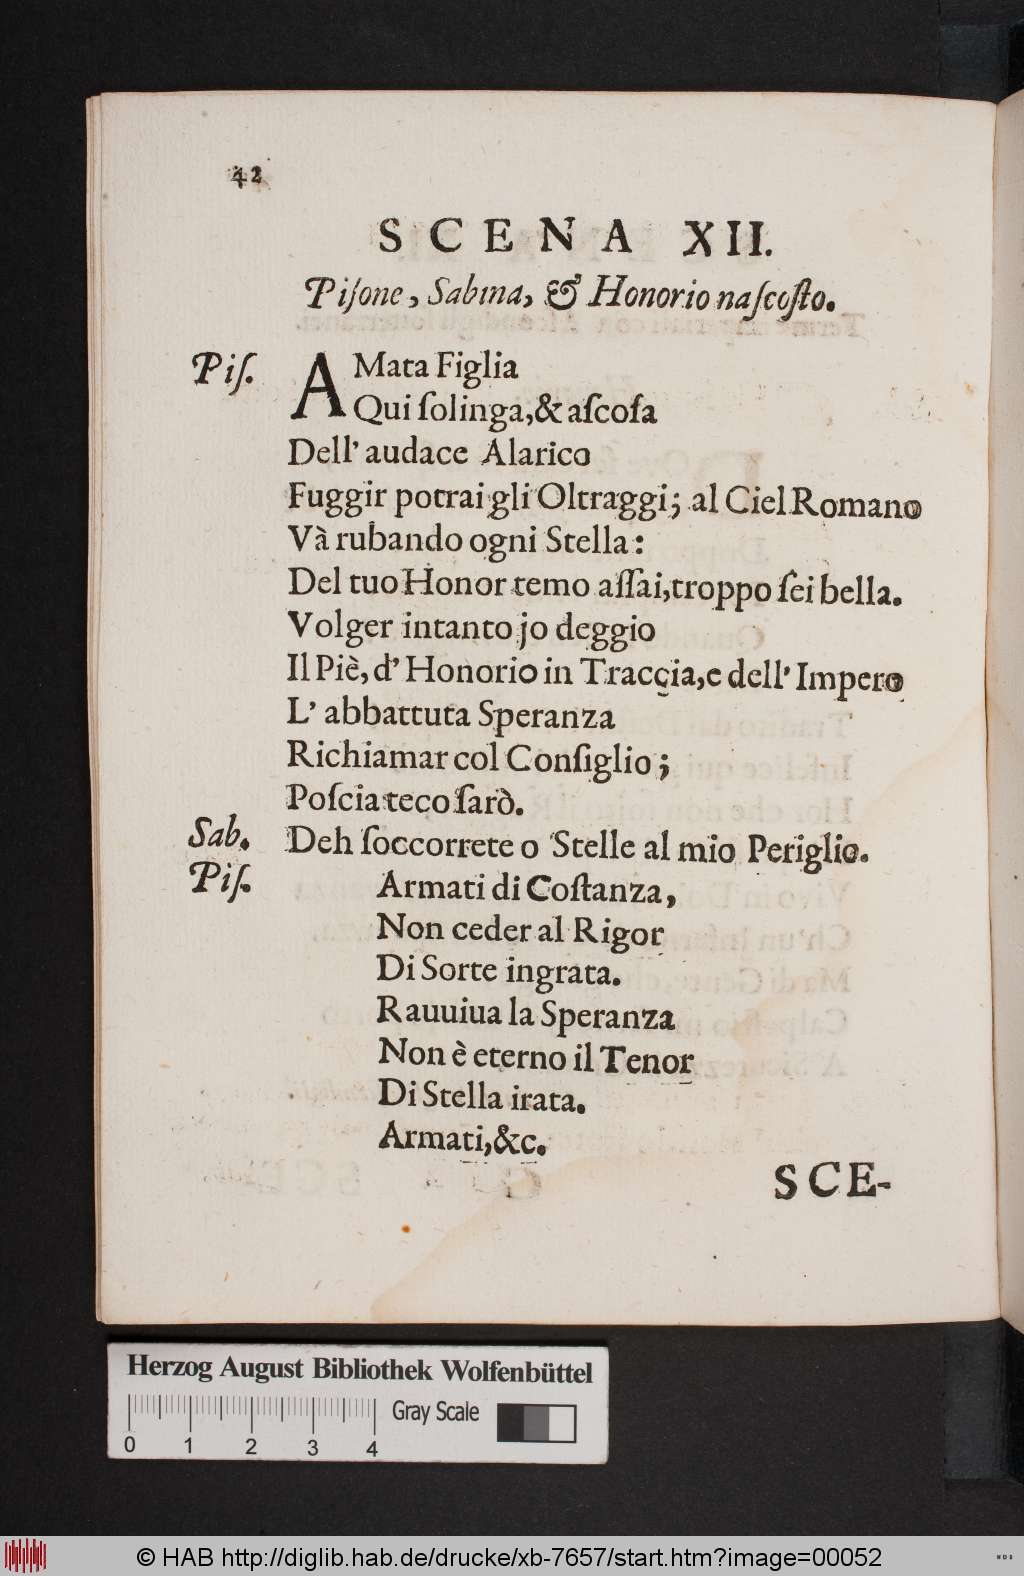 42
SCENA XII.
Piſone, Sabina, & Honorio naſcoſto.
Piſ. AMata Figlia
Qui ſolinga,& aſcoſa
Dell' audace Alarico
Fuggir potrai gli Oltraggi; al Ciel Romano
Và rubando ogni Stella:
Del tuo Honor temo aſſai,troppo ſei bella.
Volger intanto jo deggio
Il Piè, d' Honorio in Traccia,e dell' Impero
L' abbattuta Speranza
Richiamar col Conſiglio;
Poſcia teco ſarò.
Sab. Deh ſoccorrete o Stelle al mio Periglio.
Piſ. Armati di Coſtanza,
Non ceder al Rigor
Di Sorte ingrata.
Rauuiua la Speranza
Non è eterno il Tenor
Di Stella irata.
Armati,&c.
SCE-
Herzog August Bibliothek Wolfenbüttel
Gray Scale
0 1 2 3 4
© HAB http://diglib.hab.de/drucke/xb-7657/start.htm?image=00052